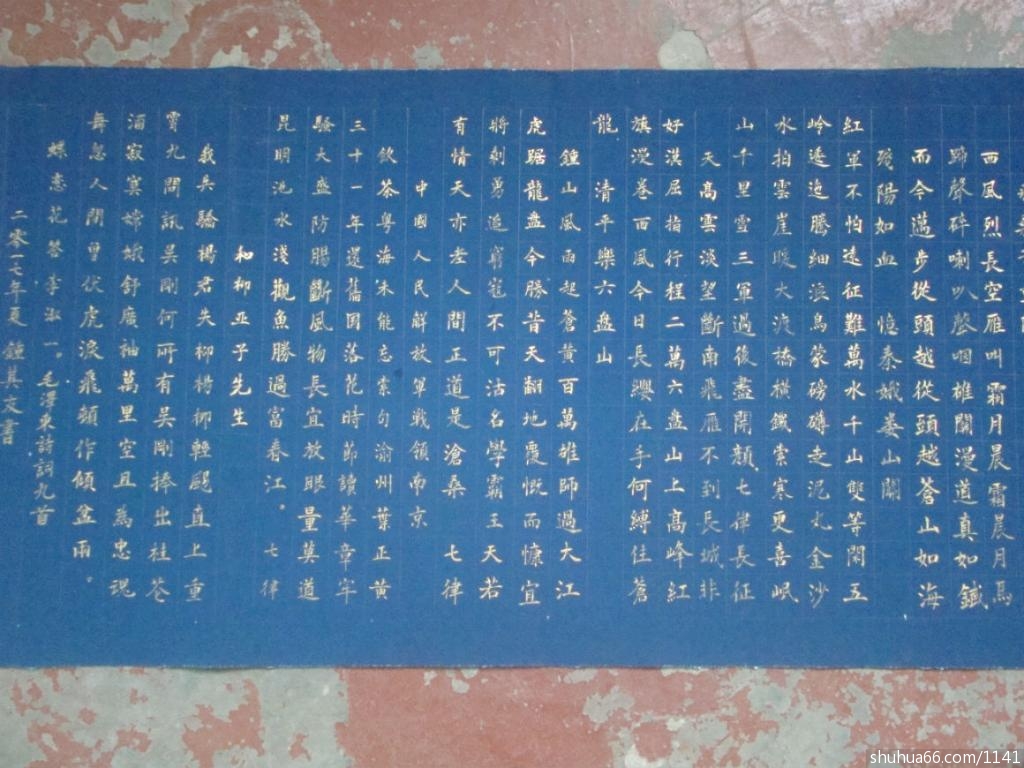 西風烈長空雁叫霜月晨霜晨月馬
蹄聲碎喇叭聲咽雄關漫道真如鐵
而今邁步從頭越從頭越蒼山如海
殘陽如血 憶秦娥婁山關
紅軍不怕遠征難萬水千山雙等閑五
岭逶迤騰細浪烏蒙磅礴走泥丸金沙
水拍雲崖暖大渡橋橫鐵索寒更喜岷
山千里雪三軍過後盡開顏七律長征
天高雲淡望斷南飛雁不到長城非
好漢屈指行程二萬六盘山上高峰紅
旗漫卷西風今日長纓在手何縛住蒼
龍 清平樂六盘山
鍾山風雨起蒼黃百萬雄師過大江
虎踞龍盘今勝昔天翻地覆慨而慷宜
將剩勇追窮寇不可沽名學霸王天若
有情天亦老人間正道是滄桑 七律
中國人民解放軍戰領南京
飲茶粵海未能忘索句渝州葉正黃
三十一年還舊国落花時節讀華章牢
騷大盛防腸斷風物長宜放眼量莫道
昆明池水淺觀魚勝過富春江。 七律
和柳亚子先生
我矣驕楊君失柳楊柳輕颺直上重
霄九問訊吴剛何所有吴剛捧出桂花
酒寂寞嫦娥舒廣袖萬里空且為忠魂
舞忽人間曾伏虎淚飛頓作傾盆雨。
蝶恋花答李淑一。毛澤東詩詞九首
二零一七年夏 鍾其文書
shuhua66.com/1141